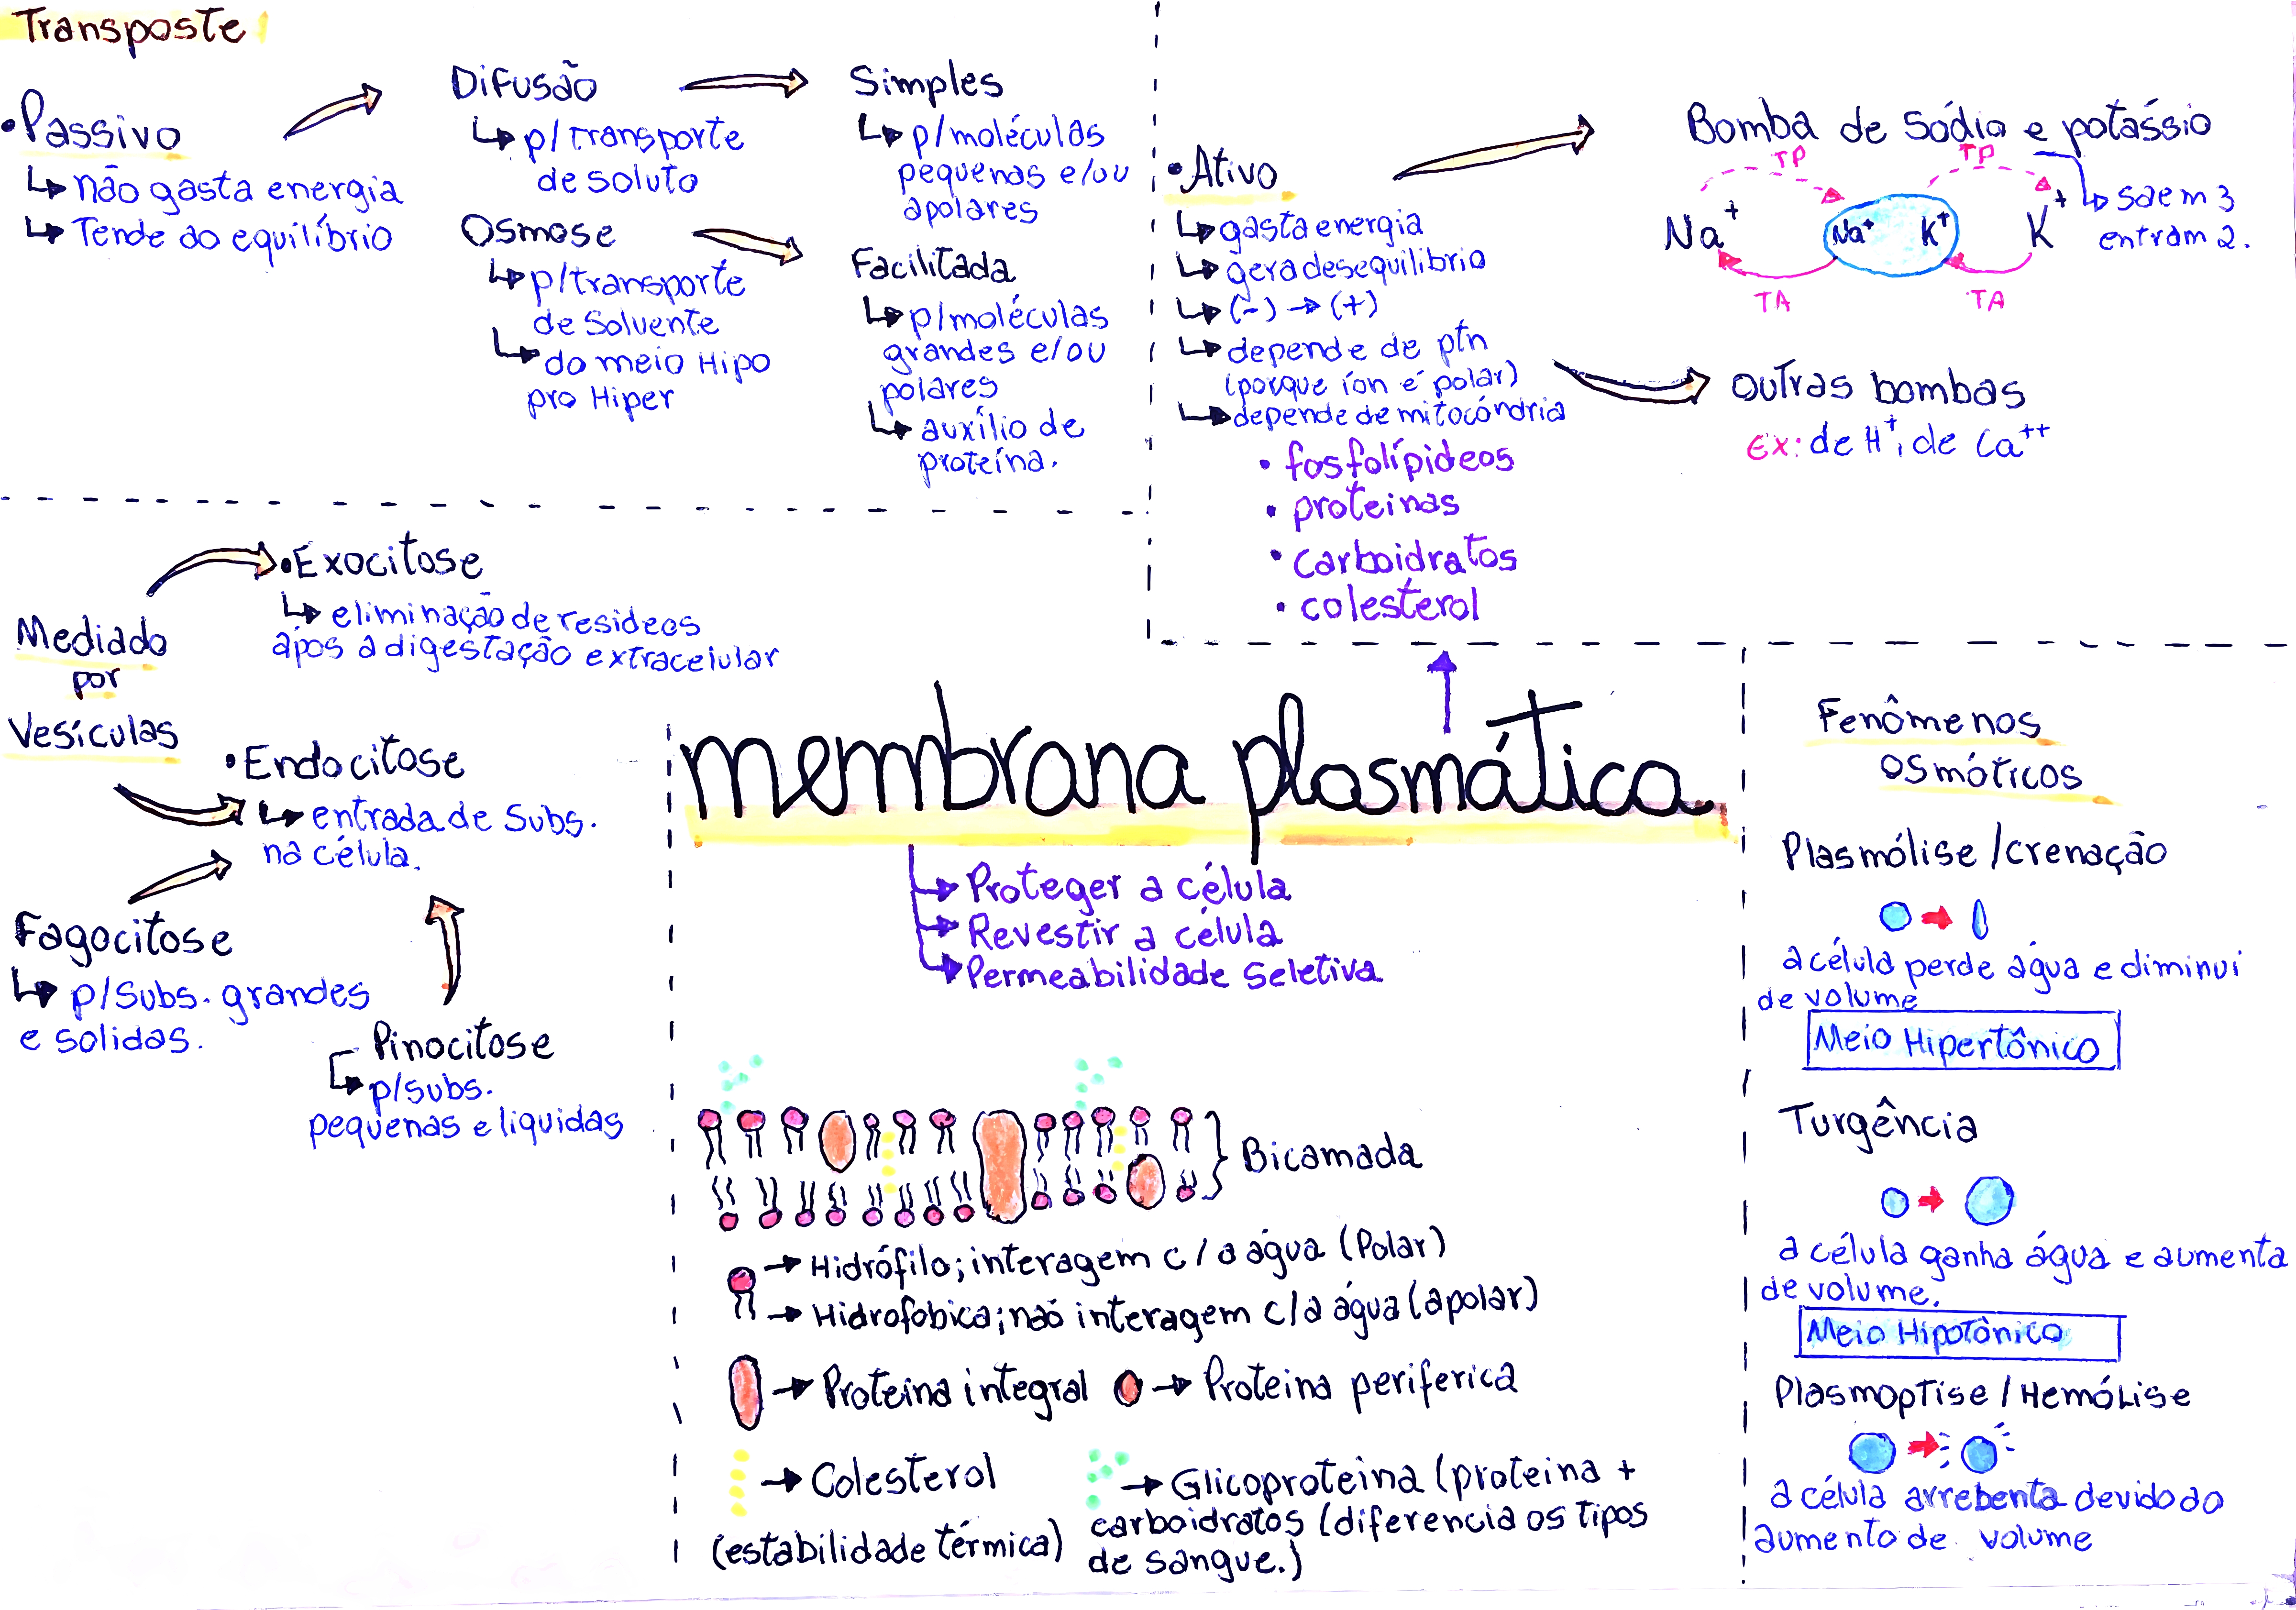 Transposte
•Passivo
↳ não gasta energia
↳ Tende ao equilíbrio
Difusão
↳ p/transporte
de soluto
Osmose
↳ p/transporte
de Solvente
↳ do meio Hipo
pro Hiper
Simples
↳ p/moléculas
pequenas e/ou
apolares
Facilitada
↳ p/moléculas
grandes e/ou
polares
↳ auxílio de
proteína.
•Ativo
↳ gasta energia
↳ gera desequilibrio
↳ (-) → (+)
↳ depende de ptn
(porque íon é polar)
↳ depende de mitocóndria
Bomba de sódio e potássio
TP TP
Na⁺ Na⁺ K⁺ K⁺
TA TA
↳ saem 3
entram 2.
outras bombas
Ex: de H⁺, de Ca⁺⁺
• fosfolípideos
• proteinas
• carboidratos
• colesterol
Mediado
por
Vesículas
•Exocitose
↳ eliminação de resideos
após a digestação extracelular
•Endocitose
↳ entrada de Subs.
na célula.
Fagocitose
↳ p/Subs. grandes
e solidas.
Pinocitose
↳ p/subs.
pequenas e liquidas
membrana plasmática
→ Proteger a célula
→ Revestir a célula
→ Permeabilidade Seletiva
Bicamada
→ Hidrófilo; interagem c/ a água (Polar)
→ Hidrofobica; não interagem c/a água (apolar)
→ Proteina integral → Proteina periferica
→ Colesterol
(estabilidade térmica)
→ Glicoproteina (proteina +
carboidratos (diferencia os tipos
de sangue.)
Fenômenos
osmóticos
Plasmólise /crenação
a célula perde água e diminui
de volume
Meio Hipertônico
Turgência
a célula ganha água e aumenta
de volume.
Meio Hipotônico
Plasmoptise / Hemólise
a célula arrebenta devido ao
aumento de volume